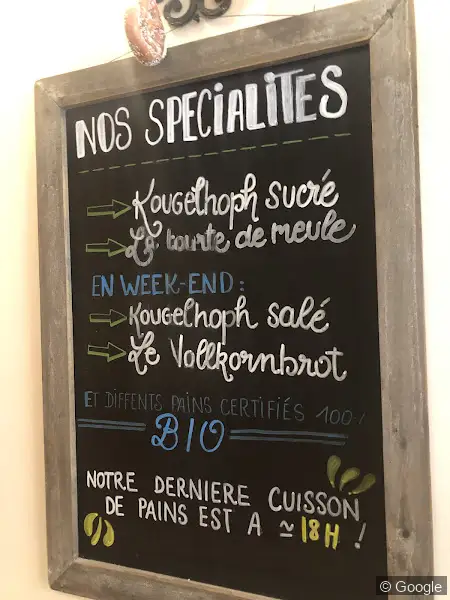 NOS SPECIALITES
Kougelhoph sucré
La tourte de meule
EN WEEK-END:
Kougelhoph salé
Le Vollkornbrot
ET DIFFENTS PAINS CERTIFIÉS 100%
BIO
NOTRE DERNIERE CUISSON
DE PAINS EST A ≃ 18H !
© Google